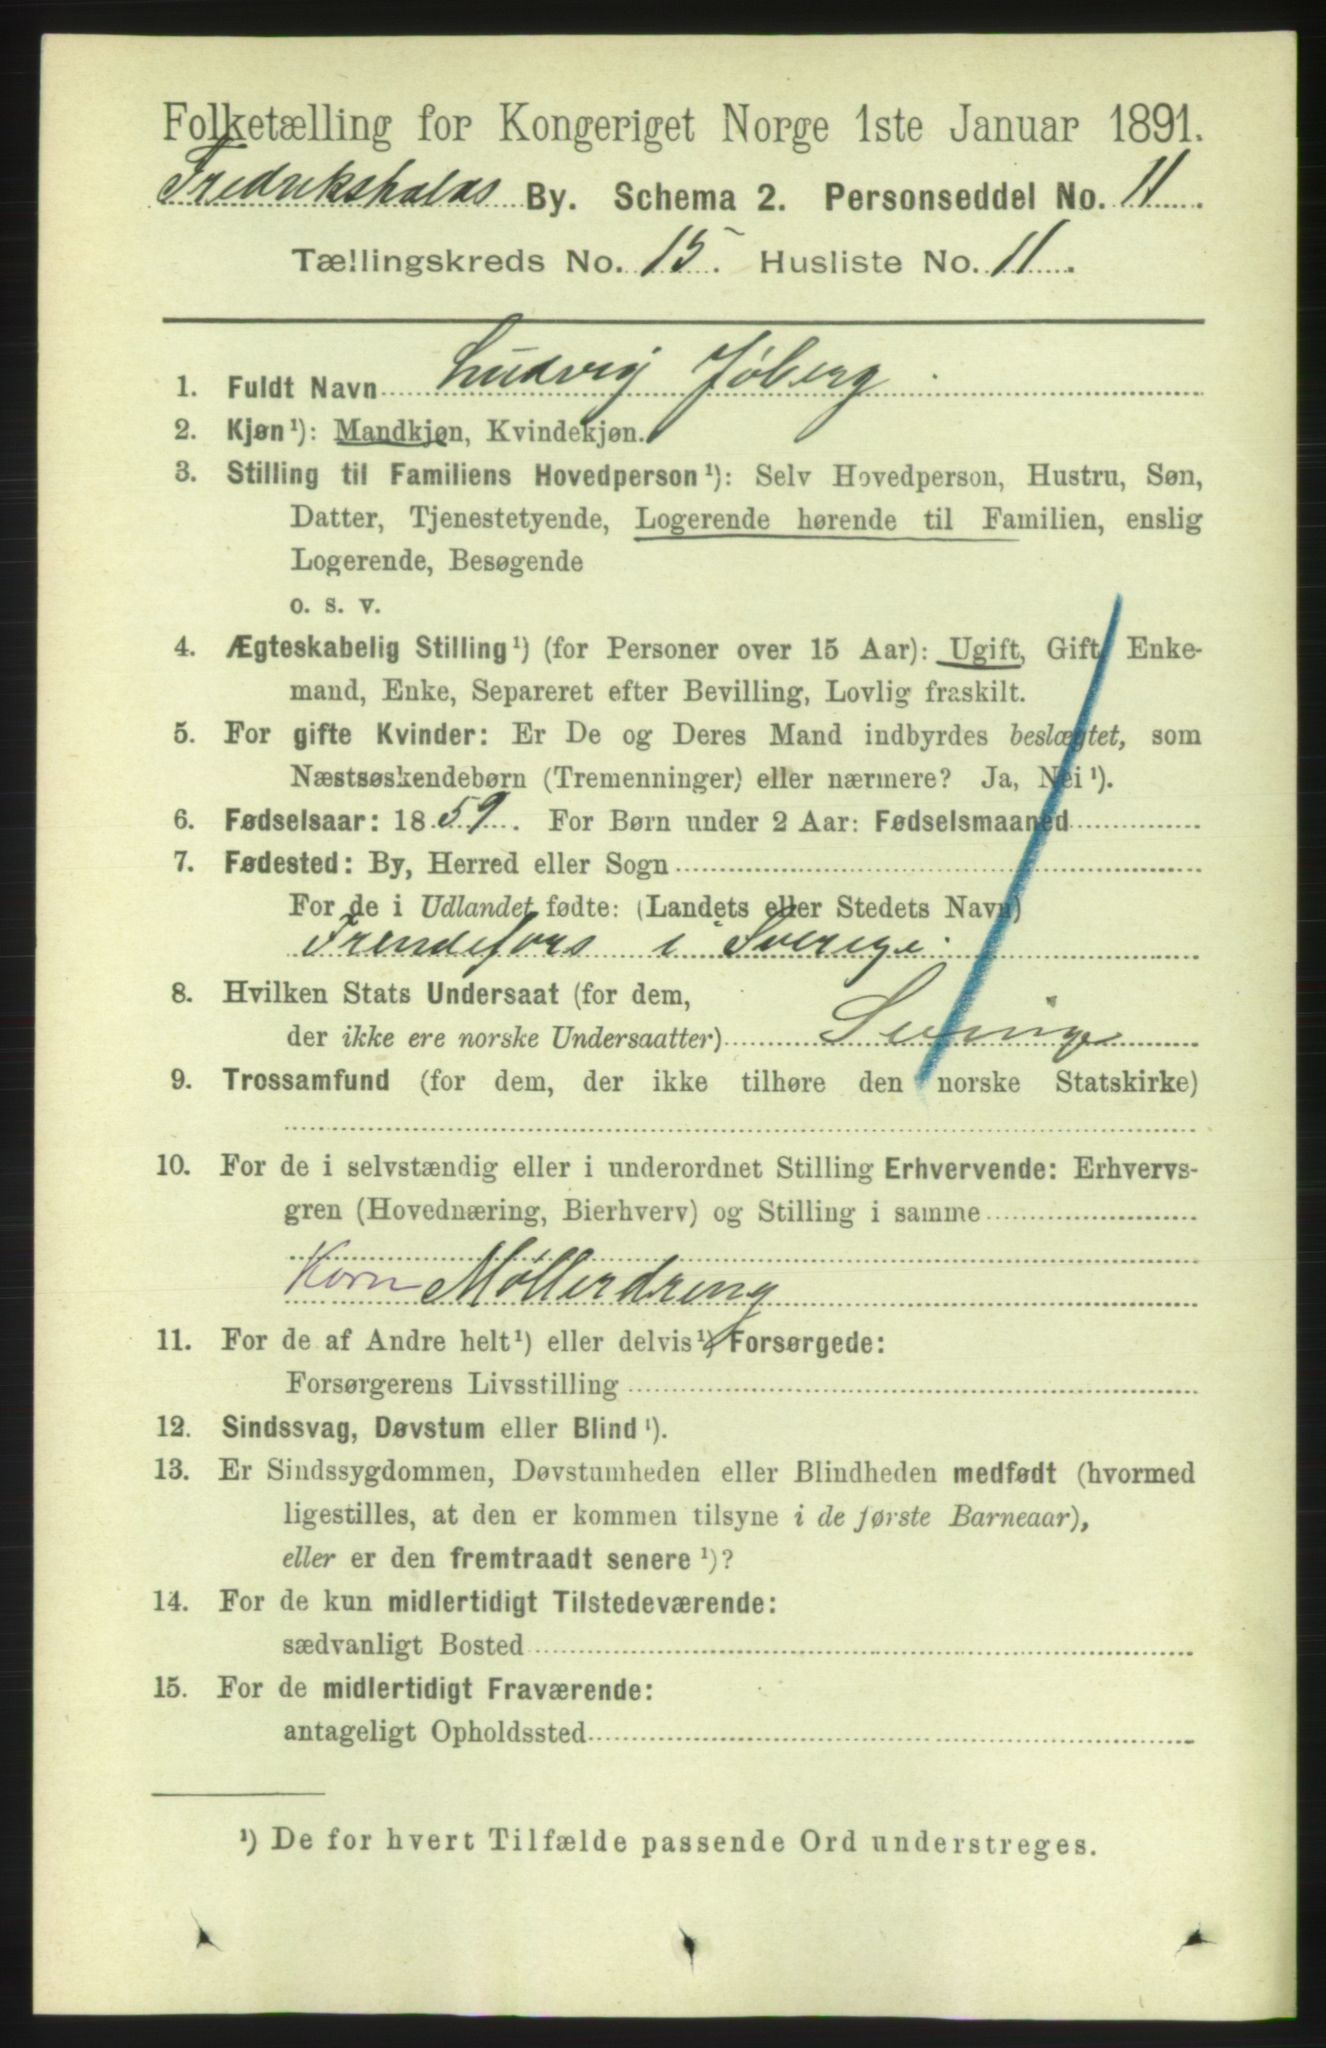 Folketælling for Kongeriget Norge 1ste Januar 1891.
Fredrikshalds By. Schema 2. Personseddel No. 11
Tællingskreds No. 15. Husliste No. 11.
1. Fuldt Navn Ludvig Jøberg.
2. Kjøn¹): Mandkjøn, Kvindekjøn.
3. Stilling til Familiens Hovedperson¹): Selv Hovedperson, Hustru, Søn,
Datter, Tjenestetyende, Logerende hørende til Familien, enslig
Logerende, Besøgende
o. s. v.
4. Ægteskabelig Stilling¹) (for Personer over 15 Aar): Ugift, Gift, Enke-
mand, Enke, Separeret efter Bevilling, Lovlig fraskilt.
5. For gifte Kvinder: Er De og Deres Mand indbyrdes beslægtet, som
Næstsøskendebørn (Tremenninger) eller nærmere? Ja, Nei¹).
6. Fødselsaar: 1859. For Børn under 2 Aar: Fødselsmaaned
7. Fødested: By, Herred eller Sogn
For de i Udlandet fødte: (Landets eller Stedets Navn)
Frendefors i Sverige.
8. Hvilken Stats Undersaat (for dem,
der ikke ere norske Undersaatter) Sverige
9. Trossamfund (for dem, der ikke tilhøre den norske Statskirke)
10. For de i selvstændig eller i underordnet Stilling Erhvervende: Erhvervs-
gren (Hovednæring, Bierhverv) og Stilling i samme
Korn Møllerdreng
11. For de af Andre helt¹) eller delvis¹) Forsørgede:
Forsørgerens Livsstilling
12. Sindssvag, Døvstum eller Blind¹).
13. Er Sindssygdommen, Døvstumheden eller Blindheden medfødt (hvormed
ligestilles, at den er kommen tilsyne i de første Barneaar),
eller er den fremtraadt senere¹)?
14. For de kun midlertidigt Tilstedeværende:
sædvanligt Bosted
15. For de midlertidigt Fraværende:
antageligt Opholdssted
¹) De for hvert Tilfælde passende Ord understreges.